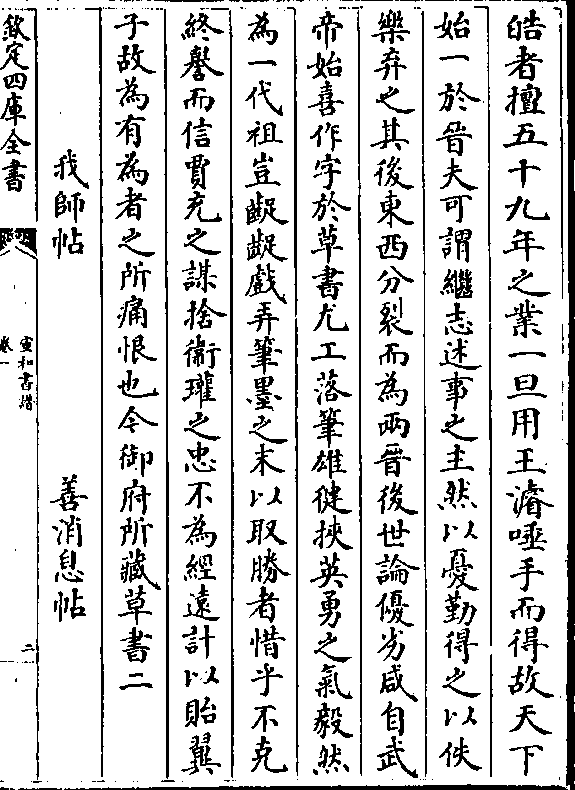 皓者擅五十九年之業一旦用王濬唾手而得故天下
始一於晉夫可謂繼志述事之主然以憂勤得之以佚
樂弃之其後東西分裂而為兩晉後世論優劣咸自武
帝始喜作字於草書尤工落筆雄健挾英勇之氣毅然
為一代祖豈齪齪戲弄筆墨之末以取勝者惜乎不克
終譽而信賈充之謀捨衛瓘之忠不為經遠計以貽翼
子故為有為者之所痛恨也今御府所藏草書二
我師帖 善消息帖
欽定四庫全書
宣和書譜
卷一
二